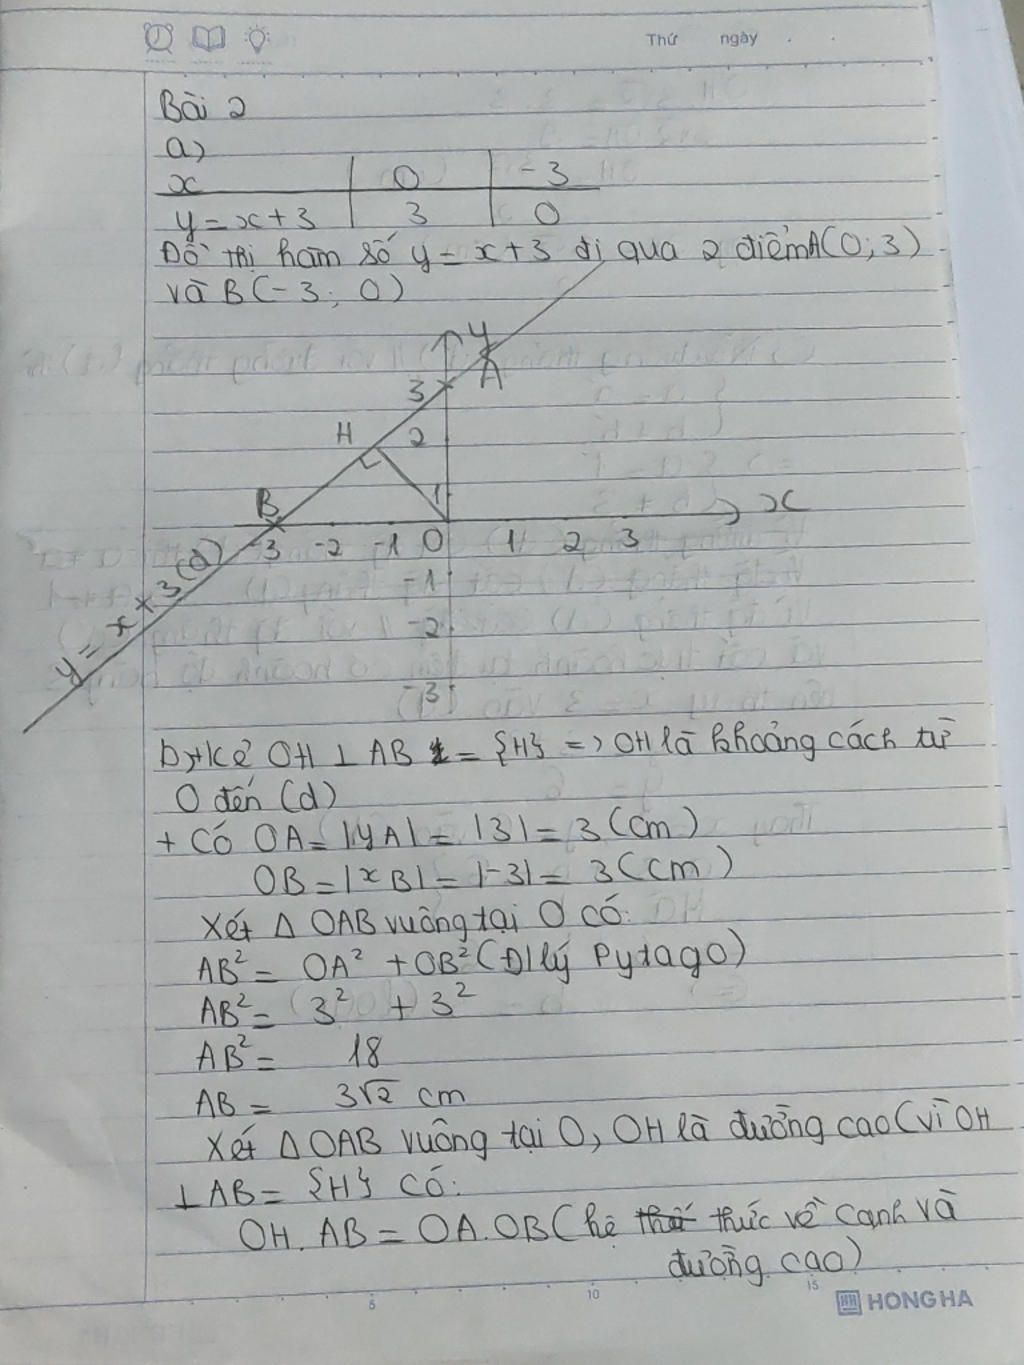 Thứ ngày . .
Bài 2
a)
x 0 -3
y = x+3 3 0
Đồ thị hàm số y = x+3 đi qua 2 điểm A(0; 3)
và B(-3; 0)
y
A
3
H 2
1
B x
-3 -2 -1 0 1 2 3
y = x + 3 (d)
-1
-2
-3
b) +Kẻ OH ⊥ AB = {H} => OH là khoảng cách từ
O đến (d)
+ Có OA = |yA| = |3| = 3 (cm)
OB = |xB| = |-3| = 3 (cm)
Xét Δ OAB vuông tại O có:
AB² = OA² + OB² (Đ/lý Pytago)
AB² = 3² + 3²
AB² = 18
AB = 3√2 cm
Xét Δ OAB vuông tại O, OH là đường cao (vì OH
⊥ AB = {H} có:
OH. AB = OA. OB (hệ thức về cạnh và
đường cao)
5 10 15
HONG HA